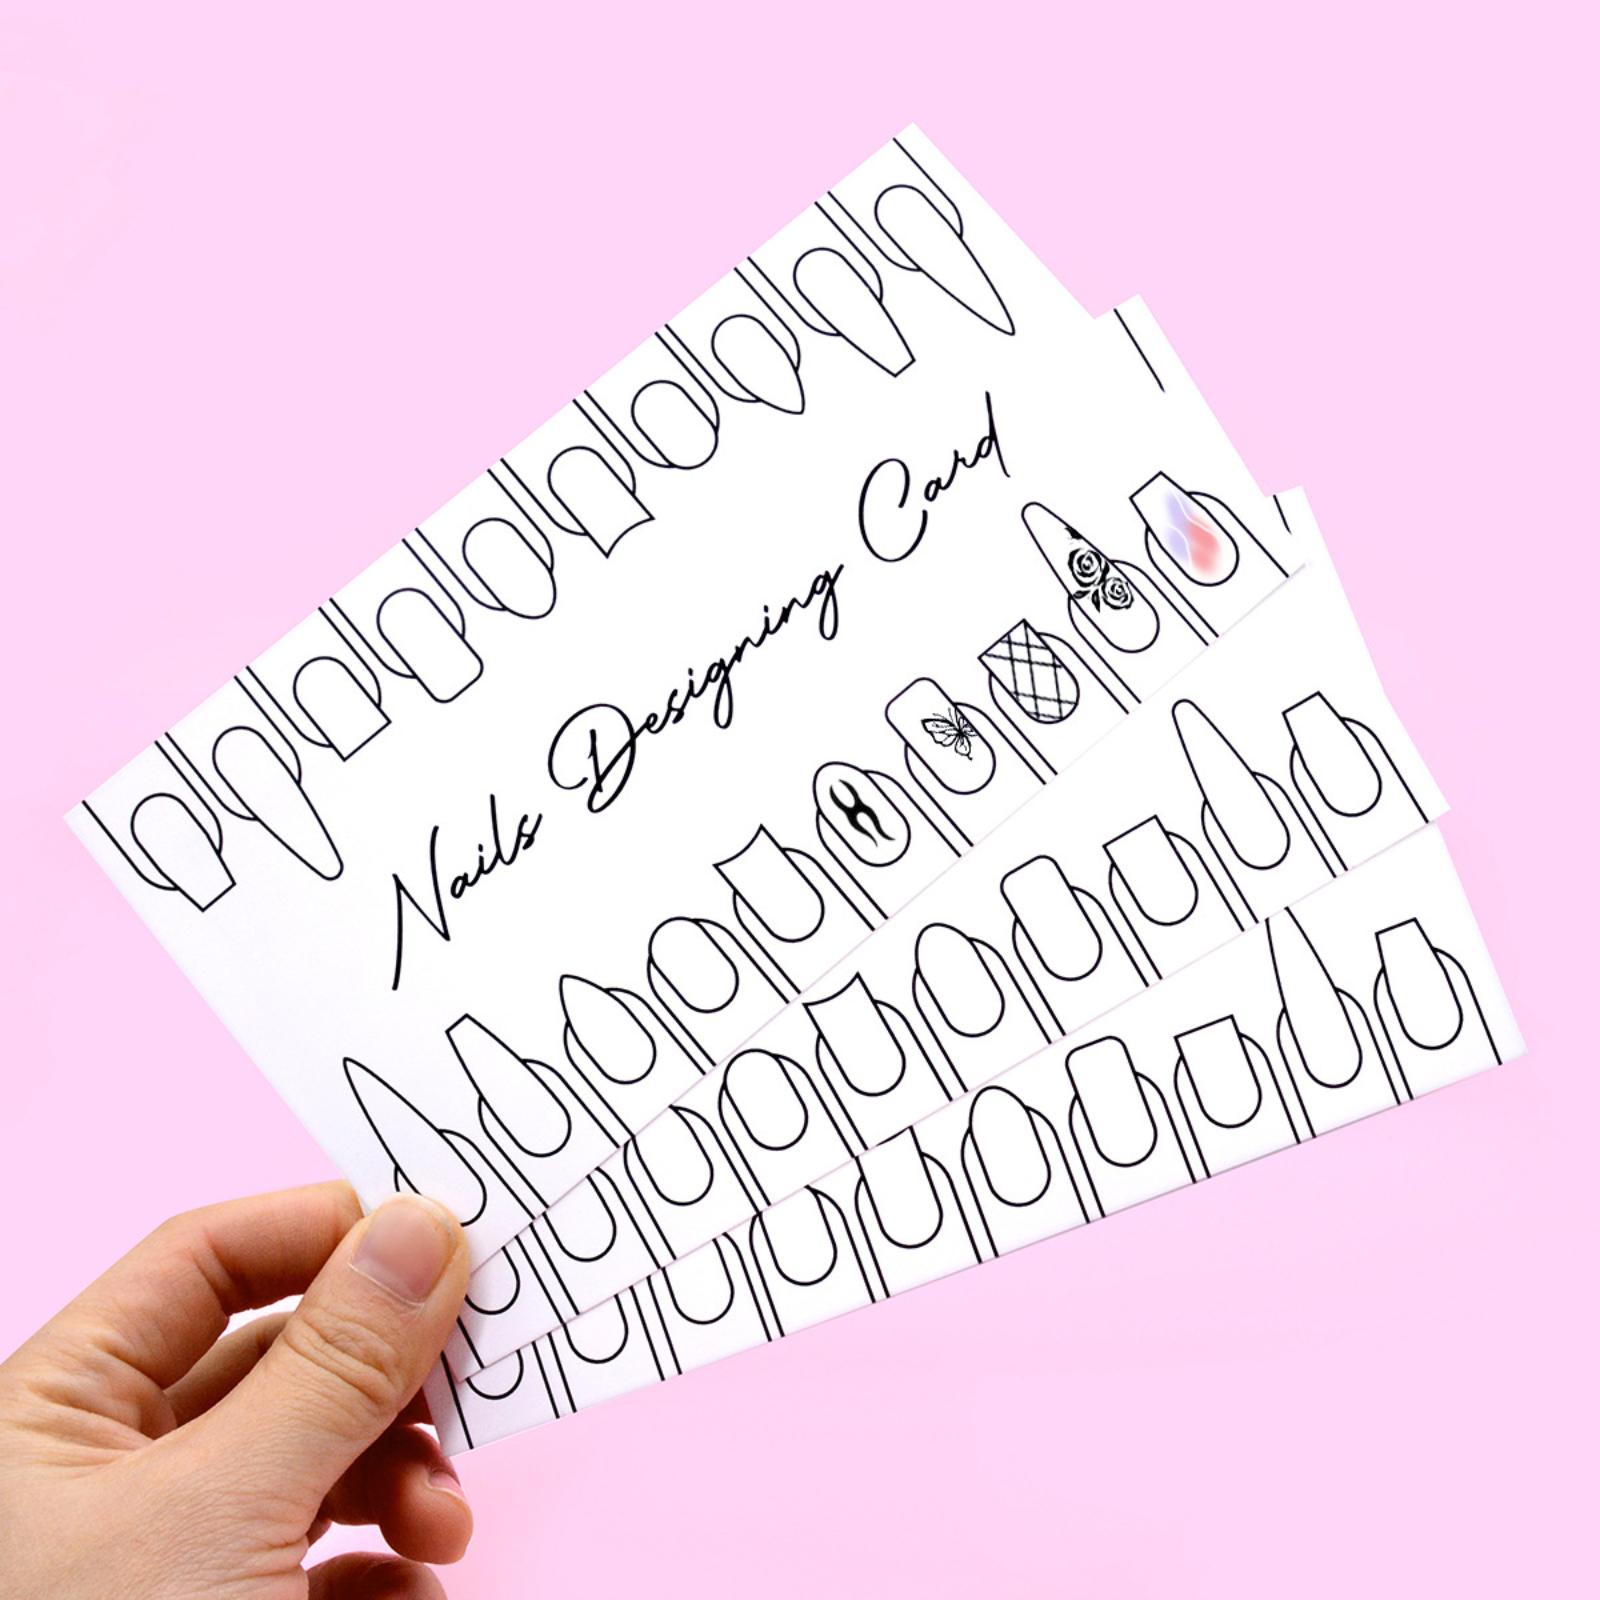 Nails Designing Card